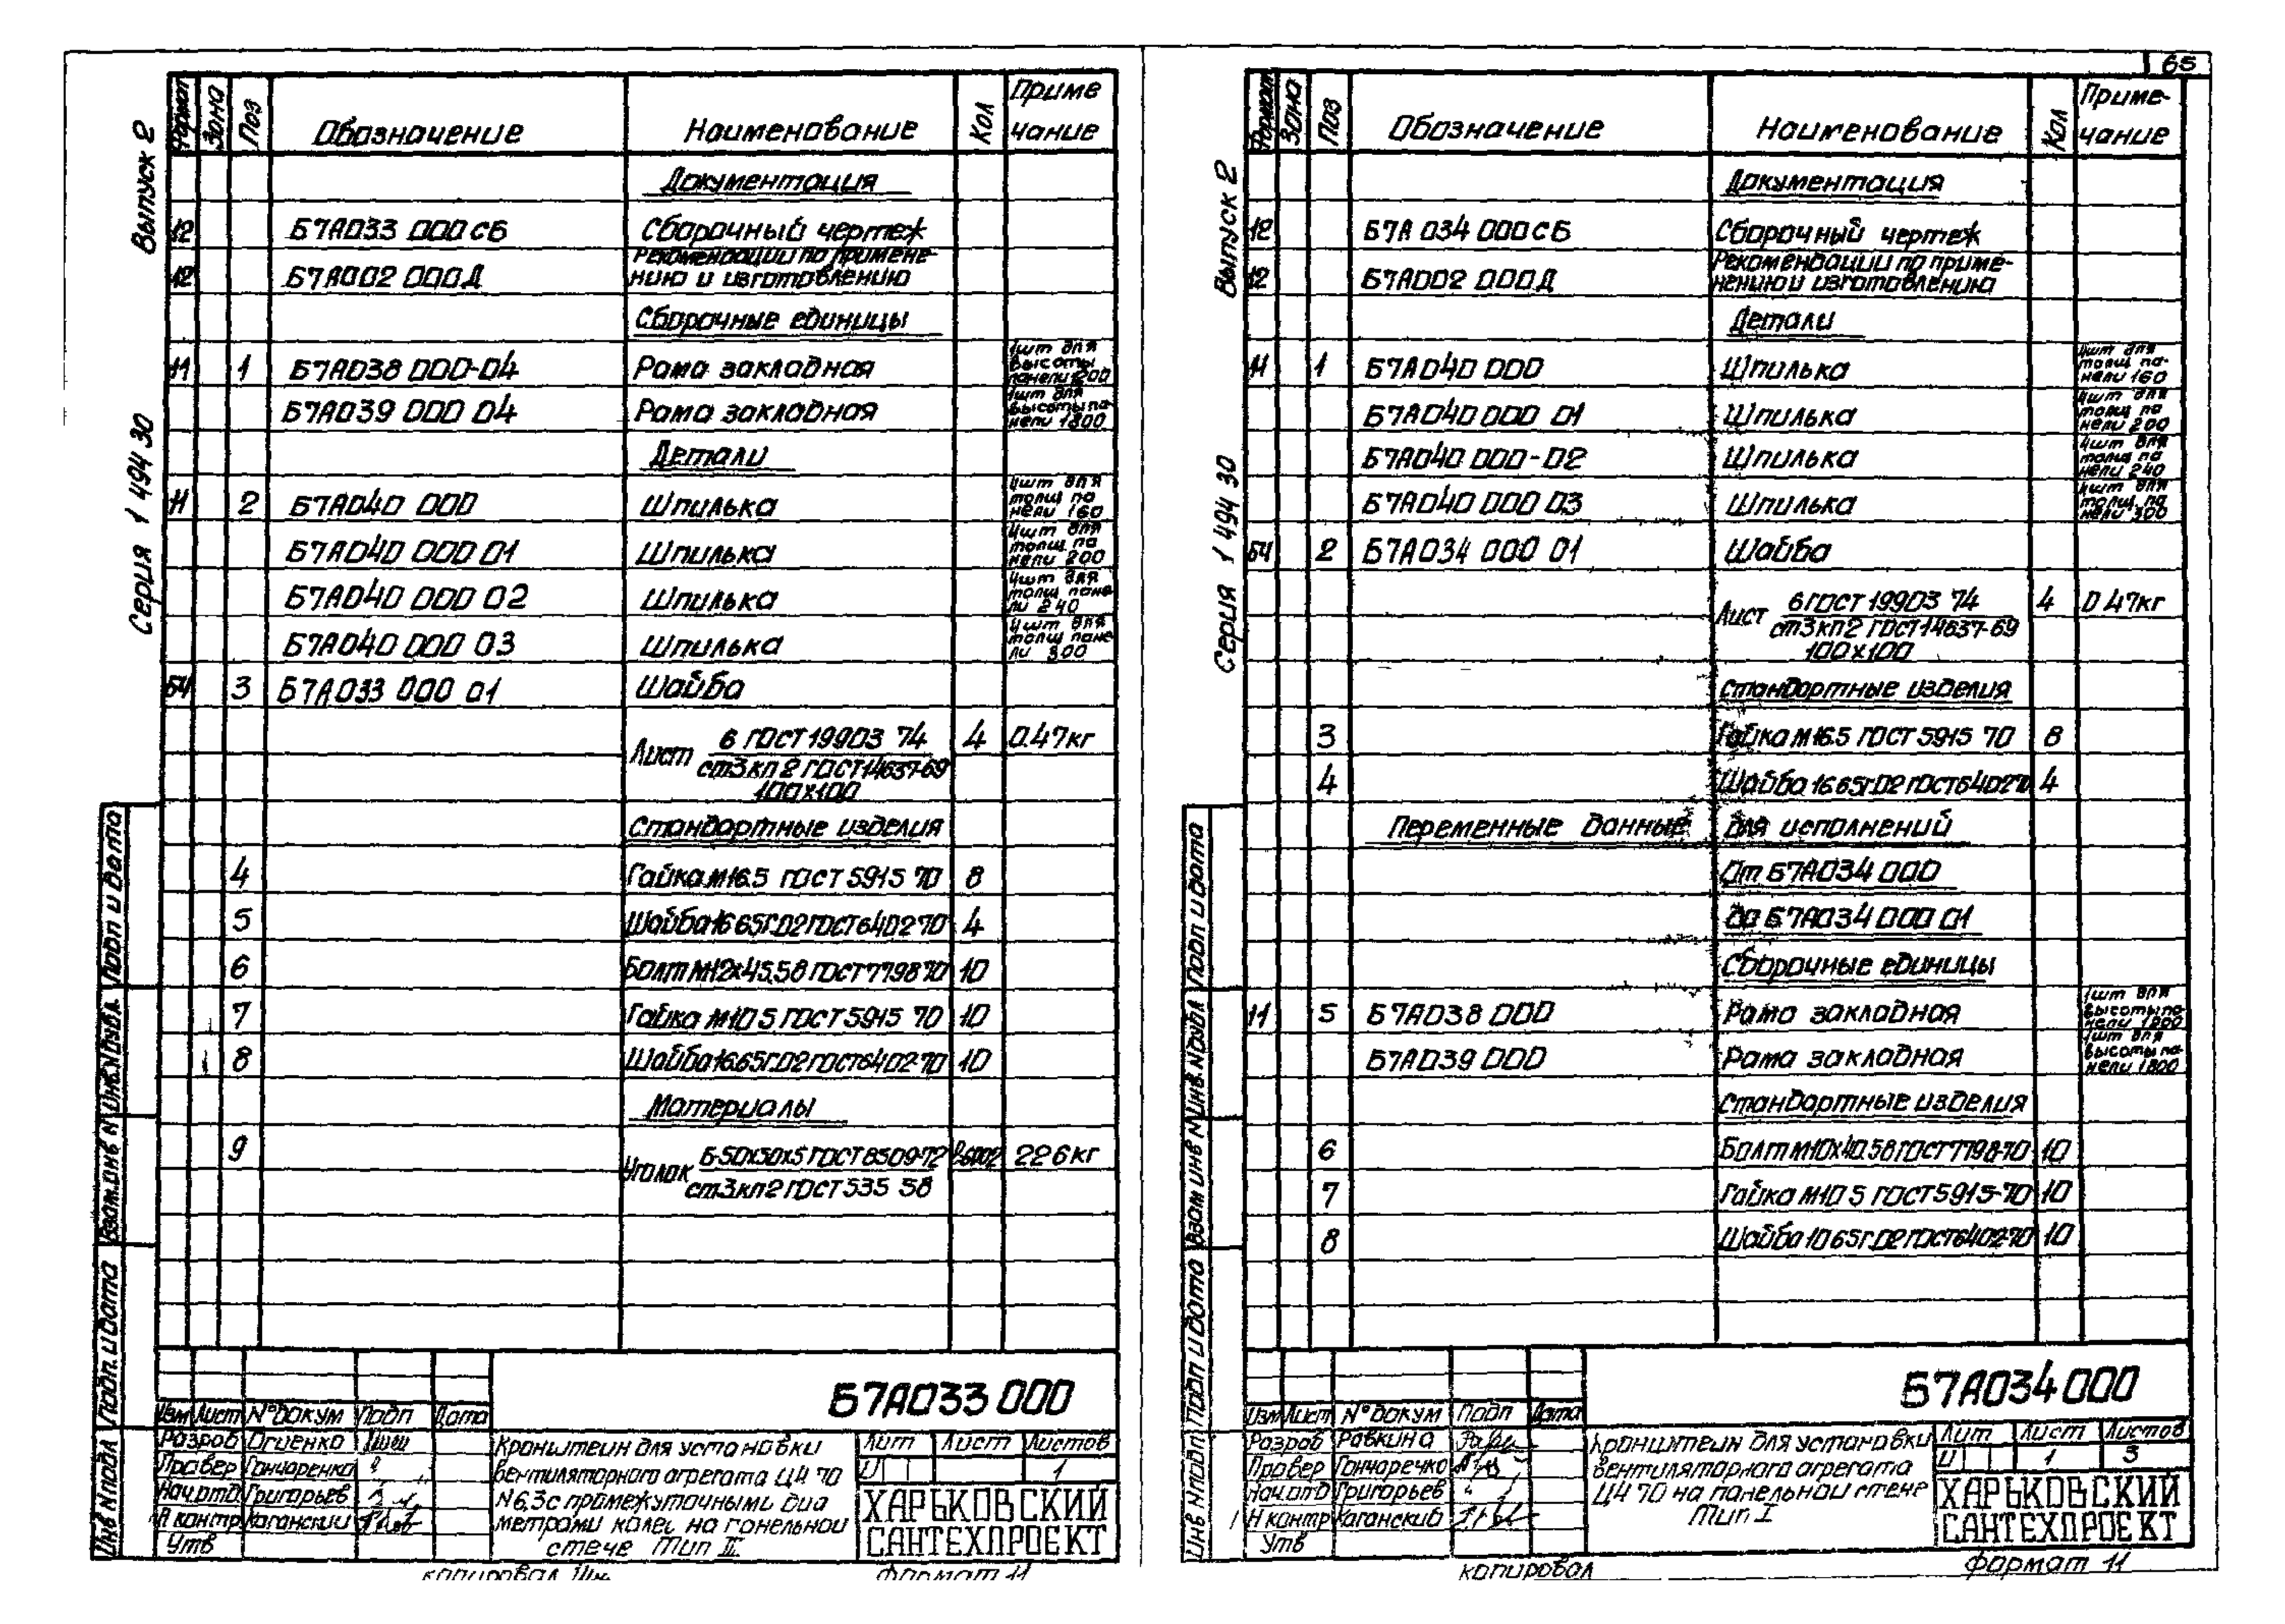 65
Выпуск 2
Серия 1 494 30
Формат Зона Поз Обозначение Наименование Кол Приме чание
Документация
12 Б7А033 000 СБ Сборочный чертеж
12 Б7А002 000Д Рекомендации по примене-
нию и изготовлению
Сборочные единицы
11 1 Б7А038 000-04 Рама закладная 1шт для высоты панели 1200
Б7А039 000 04 Рама закладная 1шт для высоты па нели 1800
Детали
11 2 Б7А040 000 Шпилька 4шт для толщ па нели 160
Б7А040 000 01 Шпилька 4шт для толщ па нели 200
Б7А040 000 02 Шпилька 4шт для толщ пане ли 240
Б7А040 000 03 Шпилька 4шт для толщ пане ли 300
БЧ 3 Б7А033 000 01 Шайба
Лист 6 ГОСТ 19903 74 4 0.47кг
ст3кп2 ГОСТ14637-69
100х100
Стандартные изделия
4 Гайка М16.5 ГОСТ 5915 70 8
5 Шайба 16 65Г.02 ГОСТ 6402 70 4
6 Болт М12х45.58 ГОСТ 7798 70 10
7 Гайка М10 5 ГОСТ 5915 70 10
8 Шайба 16.65Г.02 ГОСТ 6402-70 10
Материалы
9 Уголок Б-50х50х5 ГОСТ 8509-72 22.6кг
ст3кп2 ГОСТ 535 58
Подп и дата
Инв.N дубл.
Взам.инв N
Подп. и дата
Инв N подл
Б7А033 000
Изм Лист N° докум Подп Дата
Разраб Огиенко
Провер Гончаренко
Нач.отд Григорьев
Н контр Каганский
Утв
Кронштейн для установки
вентиляторного агрегата Ц4 70
N6,3 с промежуточными диа
метрами колес на панельной
стене Тип II
Лит Лист Листов
И 1
ХАРЬКОВСКИЙ
САНТЕХПРОЕКТ
копировал
Формат 11
Выпуск 2
Серия 1 494 30
Формат Зона Поз Обозначение Наименование Кол Приме- чание
Документация
12 Б7А 034 000 СБ Сборочный чертеж
12 Б7А002 000Д Рекомендации по приме-
нению и изготовлению
Детали
11 1 Б7А040 000 Шпилька 4шт для толщ па- нели 160
Б7А040 000 01 Шпилька 4шт для толщ па нели 200
Б7А040 000-02 Шпилька 4шт для толщ па нели 240
Б7А040 000 03 Шпилька 4шт для толщ па нели 300
БЧ 2 Б7А034 000 01 Шайба
Лист 6 ГОСТ 19903 74 4 0 47кг
ст3кп2 ГОСТ 14637-69
100х100
Стандартные изделия
3 Гайка М16.5 ГОСТ 5915 70 8
4 Шайба 16.65Г.02 ГОСТ 6402 70 4
Переменные данные для исполнений
От Б7А034 000
до Б7А034 000 01
Сборочные единицы
11 5 Б7А038 000 Рама закладная 1шт для высоты па- нели 1200
Б7А039 000 Рама закладная 1шт для высоты па- нели 1800
Стандартные изделия
6 Болт М10х40.58 ГОСТ 7798-70 10
7 Гайка М10 5 ГОСТ 5915-70 10
8 Шайба 10 65Г.02 ГОСТ 6402-70 10
Подп и дата
Инв.N дубл
Взам инв N
Подп и дата
Инв N подл
Б7А034 000
Изм Лист N° докум Подп Дата
Разраб Равкина
Провер Гончаренко
Нач.отд Григорьев
Н контр Каганский
Утв
Кронштейн для установки
вентиляторного агрегата
Ц4 70 на панельной стене
Тип I
Лит Лист Листов
И 1 3
ХАРЬКОВСКИЙ
САНТЕХПРОЕКТ
копировал
Формат 11